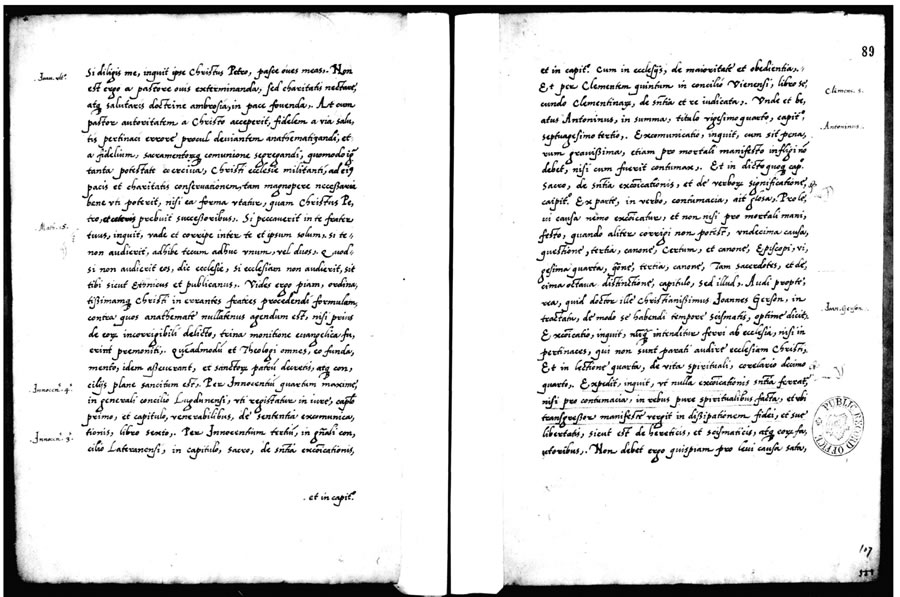 Joan. ult.
Si diligis me, inquit ipse Christus Petro, pasce oues meas. Non
est ergo a pastore ouis exterminanda, sed charitatis nectare,
atq salutaris doctrine ambrosia, in pace fouenda. At cum
pastor autoritatem a Christo acceperit, fidelem a via salu,
tis pertinaci errore procul deviantem anathematizandi, et
a fidelium, sacramentorq comunione segregandi, quomodo
tanta potestate coerciua, Christi ecclesie militanti, ad
pacis et charitatis conservationem, tam magnopere necessaria
bene vti poterit, nisi ea forma vtatur, quam Christus Pe,
tro, et ceteris prebuit successoribus. Si peccauerit in te frater
Math. 18.
tuus, inquit, vade et corripe inter te et ipsum solum, si te
non audierit, adhibe tecum adhuc vnum, vel duos. Quod
si non audierit eos, dic ecclesie, si ecclesiam non audierit, sit
tibi sicut Etnicus et publicanus. Vides ergo piam, ordina,
tissimamq Christi in errantes fratres procedendi formulam,
contra quos anathemate nullatenus agendum est, nisi prius
de eorq incorrigibili delicto, trina monitione euangelica fu,
erint premoniti. Quemadmodu et Theologi omnes, eo funda,
mento, idem asseuerant, et sanctorq patru decretis, atq con,
cilijs plane sancitum est. Per Innocentiu quartum maxime,
Innocen. 4.
in generali concilio Lugdunensi, vti registratur in iure, capite
primo, et capitulo, venerabilibus, de sententia excomunica,
tionis, libro sexto. Per Innocentium tertiu, in gnali con,
Innocen. 3.
cilio Lateranensi, in capitulo, sacro, de sntia excoicationis,
et in capit.
89
et in capit. Cum in ecclesijs, de maioritate et obedientia.
Et per Clementem quintum in concilio Vienensi, libro se,
Clemen. 5.
cundo Clementinarq, de sntia et re iudicata. Vnde et be,
atus Antoninus, in summa, titulo vigesimo quarto, capit.
septuagesimo tertio. Excomunicatio, inquit, cum sit pena,
Antoninus.
rum grauissima, etiam pro mortali manifesto infligi no
debet, nisi cum fuerit contumax. Et in dicto quoq cap.
Sacro, de sntia excoicationis, et de verborq significatione,
capit. Ex parte, in verbo, contumacia, ait glosa. Pro le,
ui causa nemo excoicatur, et non nisi pro mortali mani,
festo, quando aliter corrigi non potest, vndecima causa,
questione, tertia, canone, Certum, et canone, Episcopi, vi,
gesima quarta, qone, tertia, canone, Tam sacerdotes, et de,
cima octaua distinctione, capitulo, Sed illud. Audi propte,
rea, quid doctor ille Christianissimus Joannes Gerson, in
Joan. Gerson.
tractatu, de modo se habendi tempore scismatis, optime elicit.
Excoicatio, inquit, nuq intenditur ferri ab ecclesia, nisi in
pertinaces, qui non sunt parati audire ecclesiam Christi.
Et in lectione quarta, de vita spirituali, corelario decimo
quarto. Expedit, inquit, vt nulla excoicationis sntia ferrat,
nisi pro contumacia, in rebus pure spiritualibus facta, et vbi
transgressor manifeste vergit in dissipationem fidei, et sue
libertatis, sicut est de hereticis, et scismaticis, atq eorq fa,
utoribus. Non debet ergo quispiam pro leui causa sata,
PUBLIC RECORD OFFICE
107